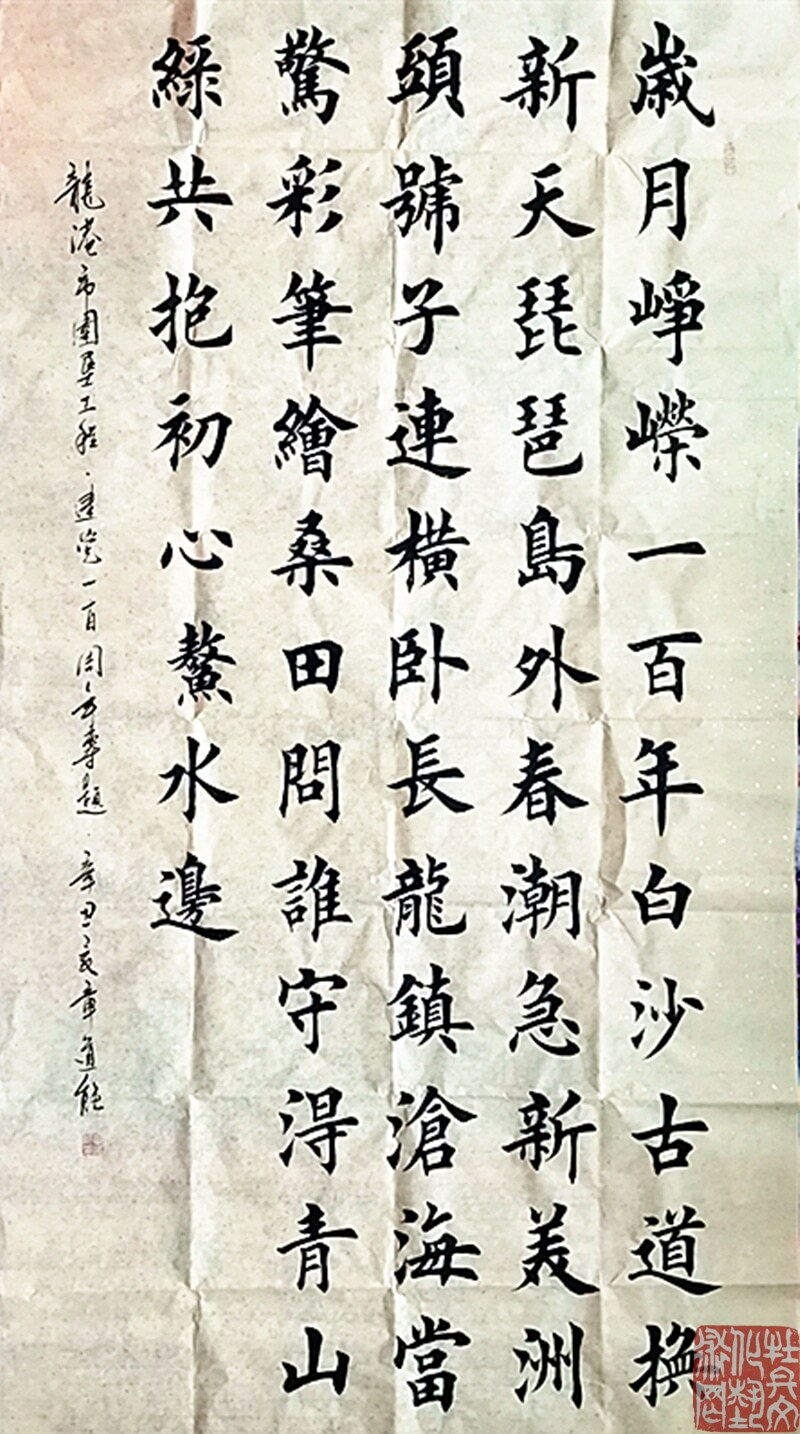 歲月崢嶸一百年白沙古道換
新天琵琶島外春潮急新美洲
頭號子連橫卧長龍鎮滄海當
驚彩筆繪桑田問誰守得青山
綠共抱初心鰲水邊
龍港市圍墾工程·建党一百周年專題·辛丑夏章道能